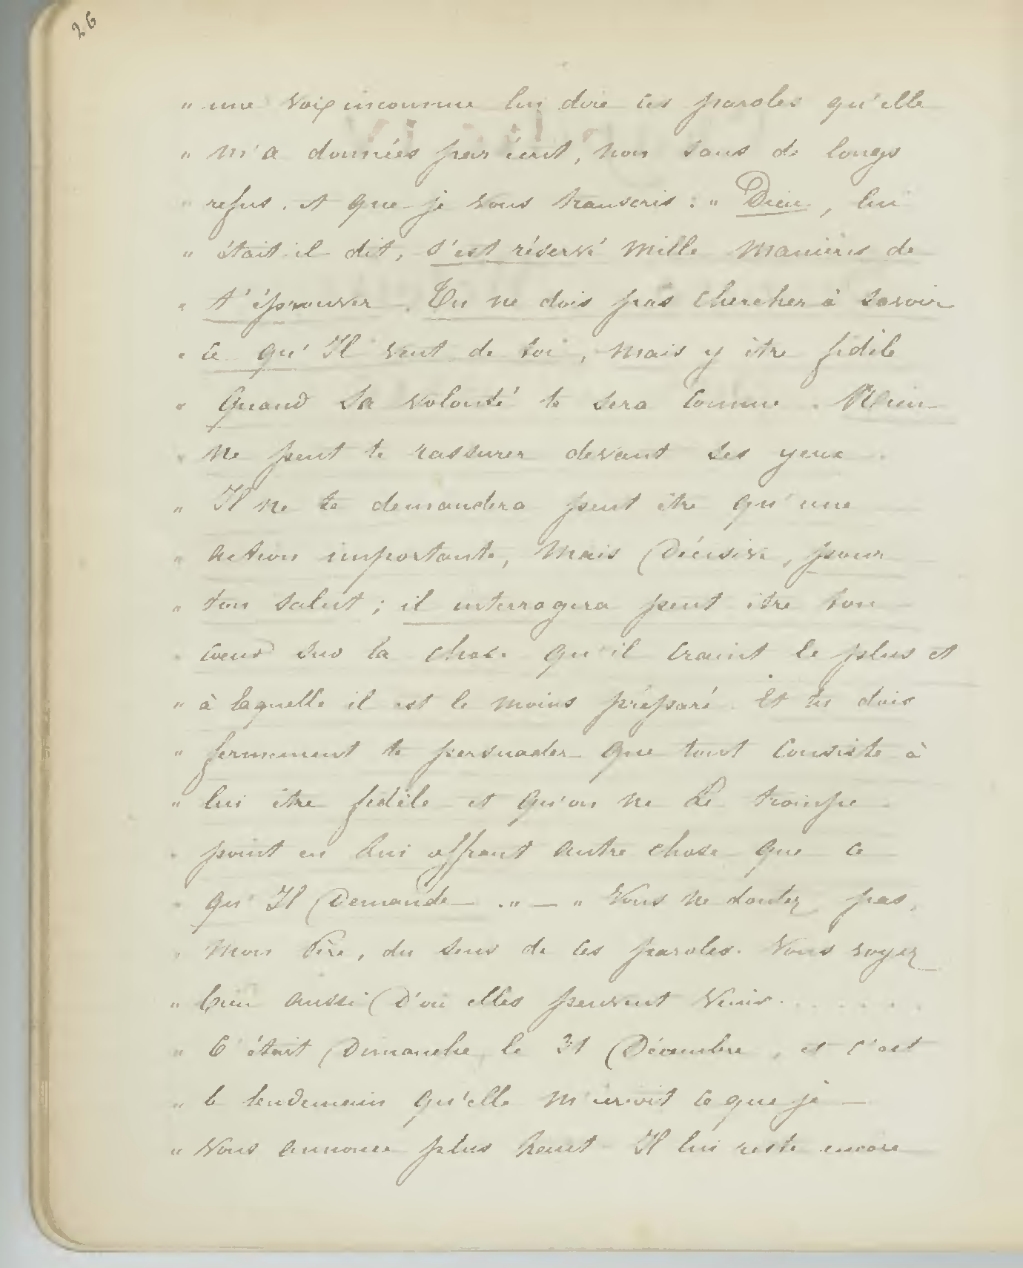 26
" une voix inconnue lui dire ces paroles qu'elle
" m'a données par écrit, non sans de longs
" refus. et que je vous transcris : " Dieu, lui
" était-il dit, s'est réservé mille manières de
" t'éprouver. Tu ne dois pas chercher à savoir
" ce qu'Il veut de toi, mais y être fidèle
" quand Sa volonté te sera connue. Rien
" ne peut te rassurer devant ses yeux.
" Il ne te demandera peut être qu'une
" action importante, mais Décisive, pour
" ton salut ; il interrogera peut être ton
" cœur sur la chose qu'il craint le plus et
" à laquelle il est le moins préparé. Et tu dois
" fermement te persuader que tout consiste à
" lui être fidèle et qu'on ne Le trompe
" point en Lui offrant autre chose que ce
" qu'Il Demande. " — " Vous ne doutez pas,
" mon Père, du sens de ces paroles. Vous voyez
" bien aussi D'où elles peuvent venir. . . . . . . .
" C'était Dimanche, le 31 Décembre, et c'est
" le lendemain qu'elle m'écrivit ce que je
" vous annonce plus haut. Il lui reste encore